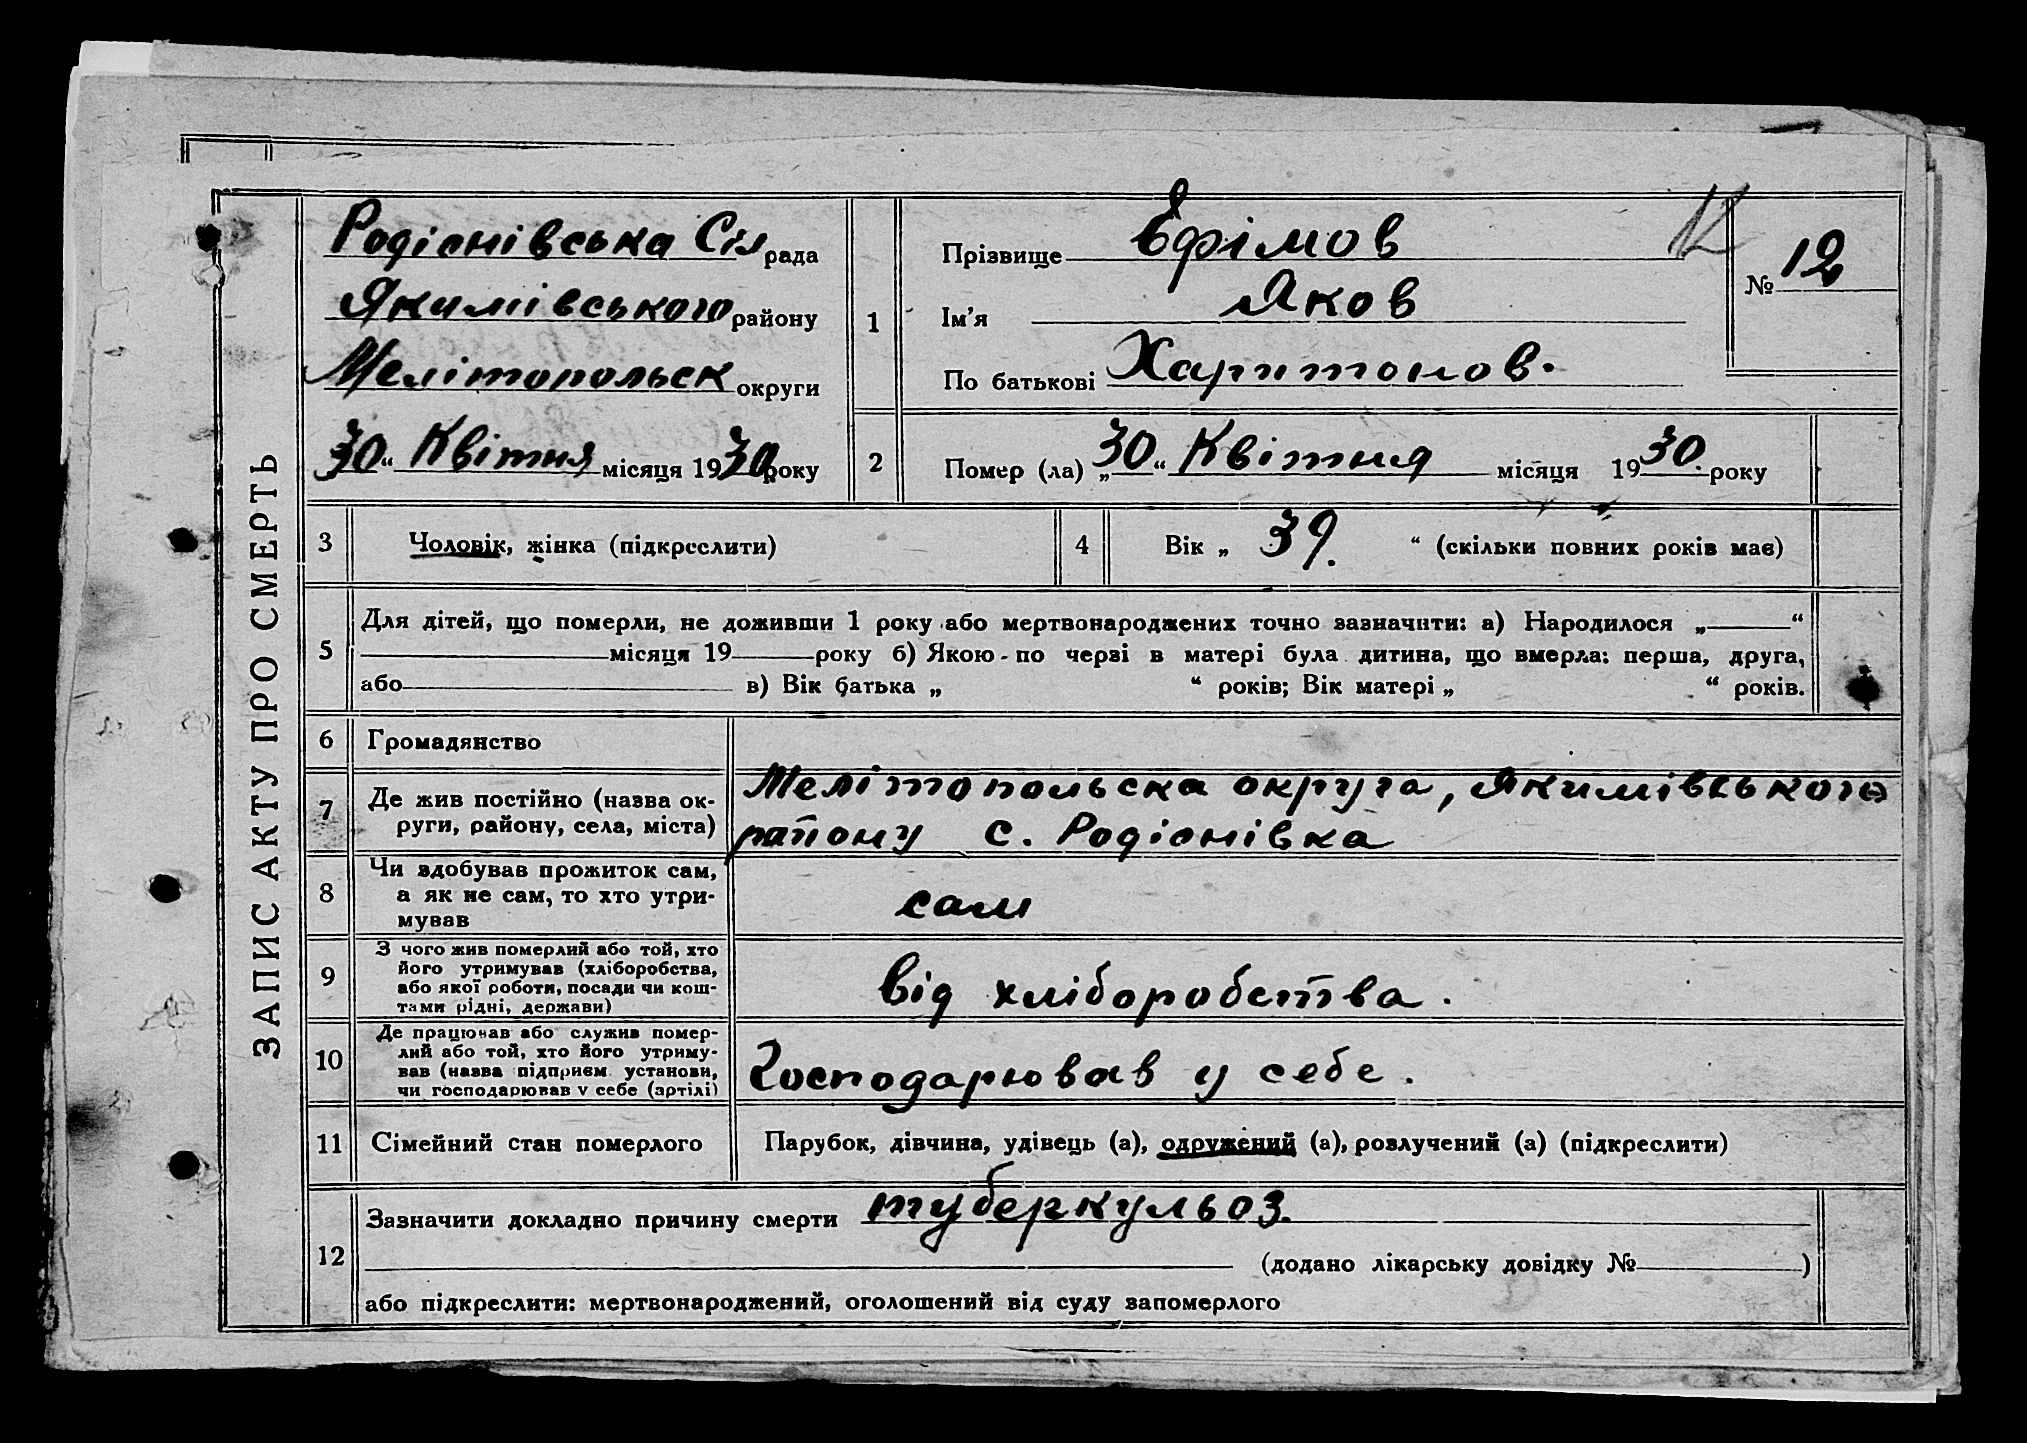 ЗАПИС АКТУ ПРО СМЕРТЬ
Родіонівська Сіл рада
Якимівського району
Мелітопольск округи
30 “ Квітня місяця 1930 року
1
Прізвище Ефімов
Ім'я Яков
По батькові Харитонов.
№ 12
2
Помер (ла) „ 30 “ Квітня місяця 1930. року
3 Чоловік, жінка (підкреслити)
4 Вік „ 39. “ (скільки повних років має)
5
Для дітей, що померли, не доживши 1 року або мертвонароджених точно зазначити: а) Народилося „ “
місяця 19 року б) Якою по черзі в матері була дитина, що вмерла: перша, друга,
або в) Вік батька „ “ років; Вік матері „ “ років.
6 Громадянство
7 Де жив постійно (назва ок-
руги, району, села, міста)
Мелітопольска округа, Якимівського
району с. Родіонівка
8 Чи здобував прожиток сам,
а як не сам, то хто утри-
мував
сам
9 З чого жив померлий або той, хто
його утримував (хліборобства,
або якої роботи, посади чи кош-
тами рідні, держави)
від хліборобства.
10 Де працював або служив помер-
лий або той, хто його утриму-
вав (назва підприєм. установи,
чи господарював у себе (артілі)
Господарював у себе.
11 Сімейний стан померлого
Парубок, дівчина, удівець (а), одружений (а), розлучений (а) (підкреслити)
12
Зазначити докладно причину смерти туберкульоз.
(додано лікарську довідку № )
або підкреслити: мертвонароджений, оголошений від суду запомерлого